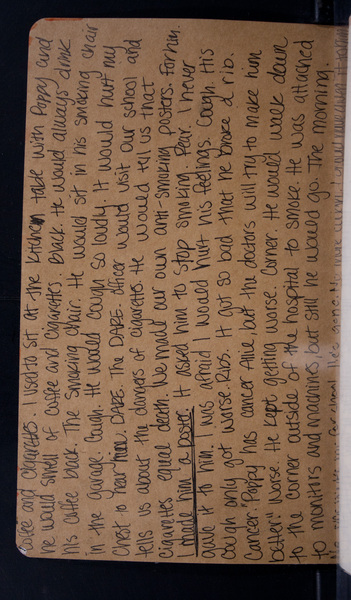 Coffee and cigarettes. Used to sit at the kitchen table with Poppy and
he would smell of coffee and cigarettes. Black. He would always drink
his coffee black. The smoking chair. He would sit in his smoking chair
in the garage. Cough. He would cough so loudly. It would hurt my
chest to hear. DARE. The DARE officer would visit our school and
tell us about the dangers of cigarettes. He would tell us that
cigarettes equal death. We made our own anti-smoking posters. For him.
I made him a poster. It asked him to stop smoking. Fear. I never
gave it to him. I was afraid I would hurt his feelings. Cough. His
cough only got worse. Ribs. It got so bad that he broke a rib.
Cancer. "Poppy has cancer Allie, but the doctors will try to make him
better." Worse. He kept getting worse. Corner. He would walk down
to the corner outside of the hospital to smoke. He was attached
to monitors and machines, but still he would go. The morning.